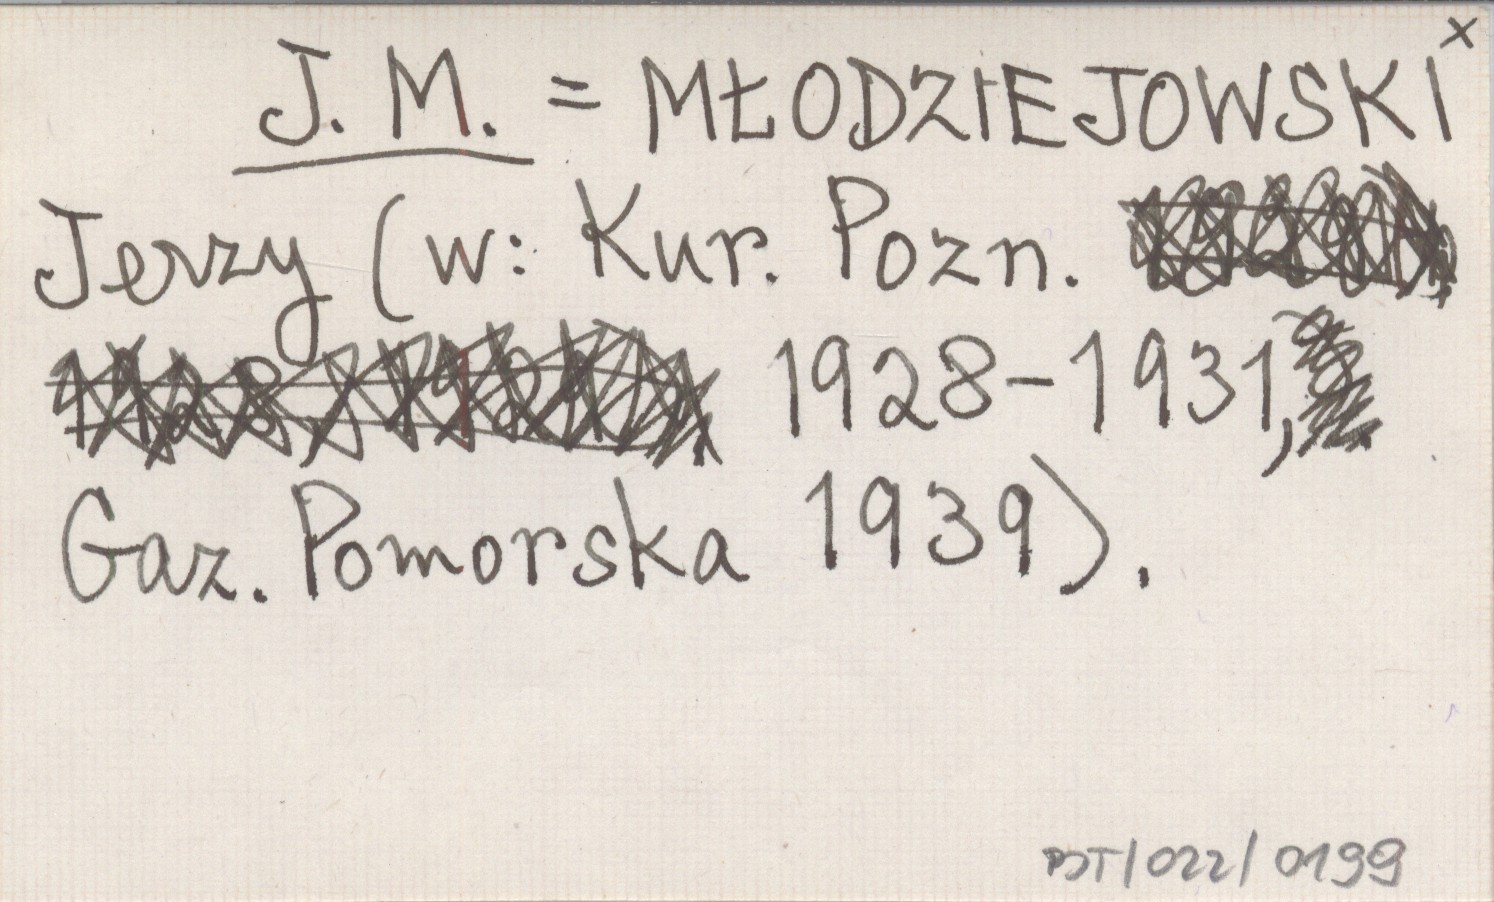 x
J. M. = MŁODZIEJOWSKI
Jerzy (w: Kur. Pozn.
1928-1931,
Gaz. Pomorska 1939).
PDT/022/0199